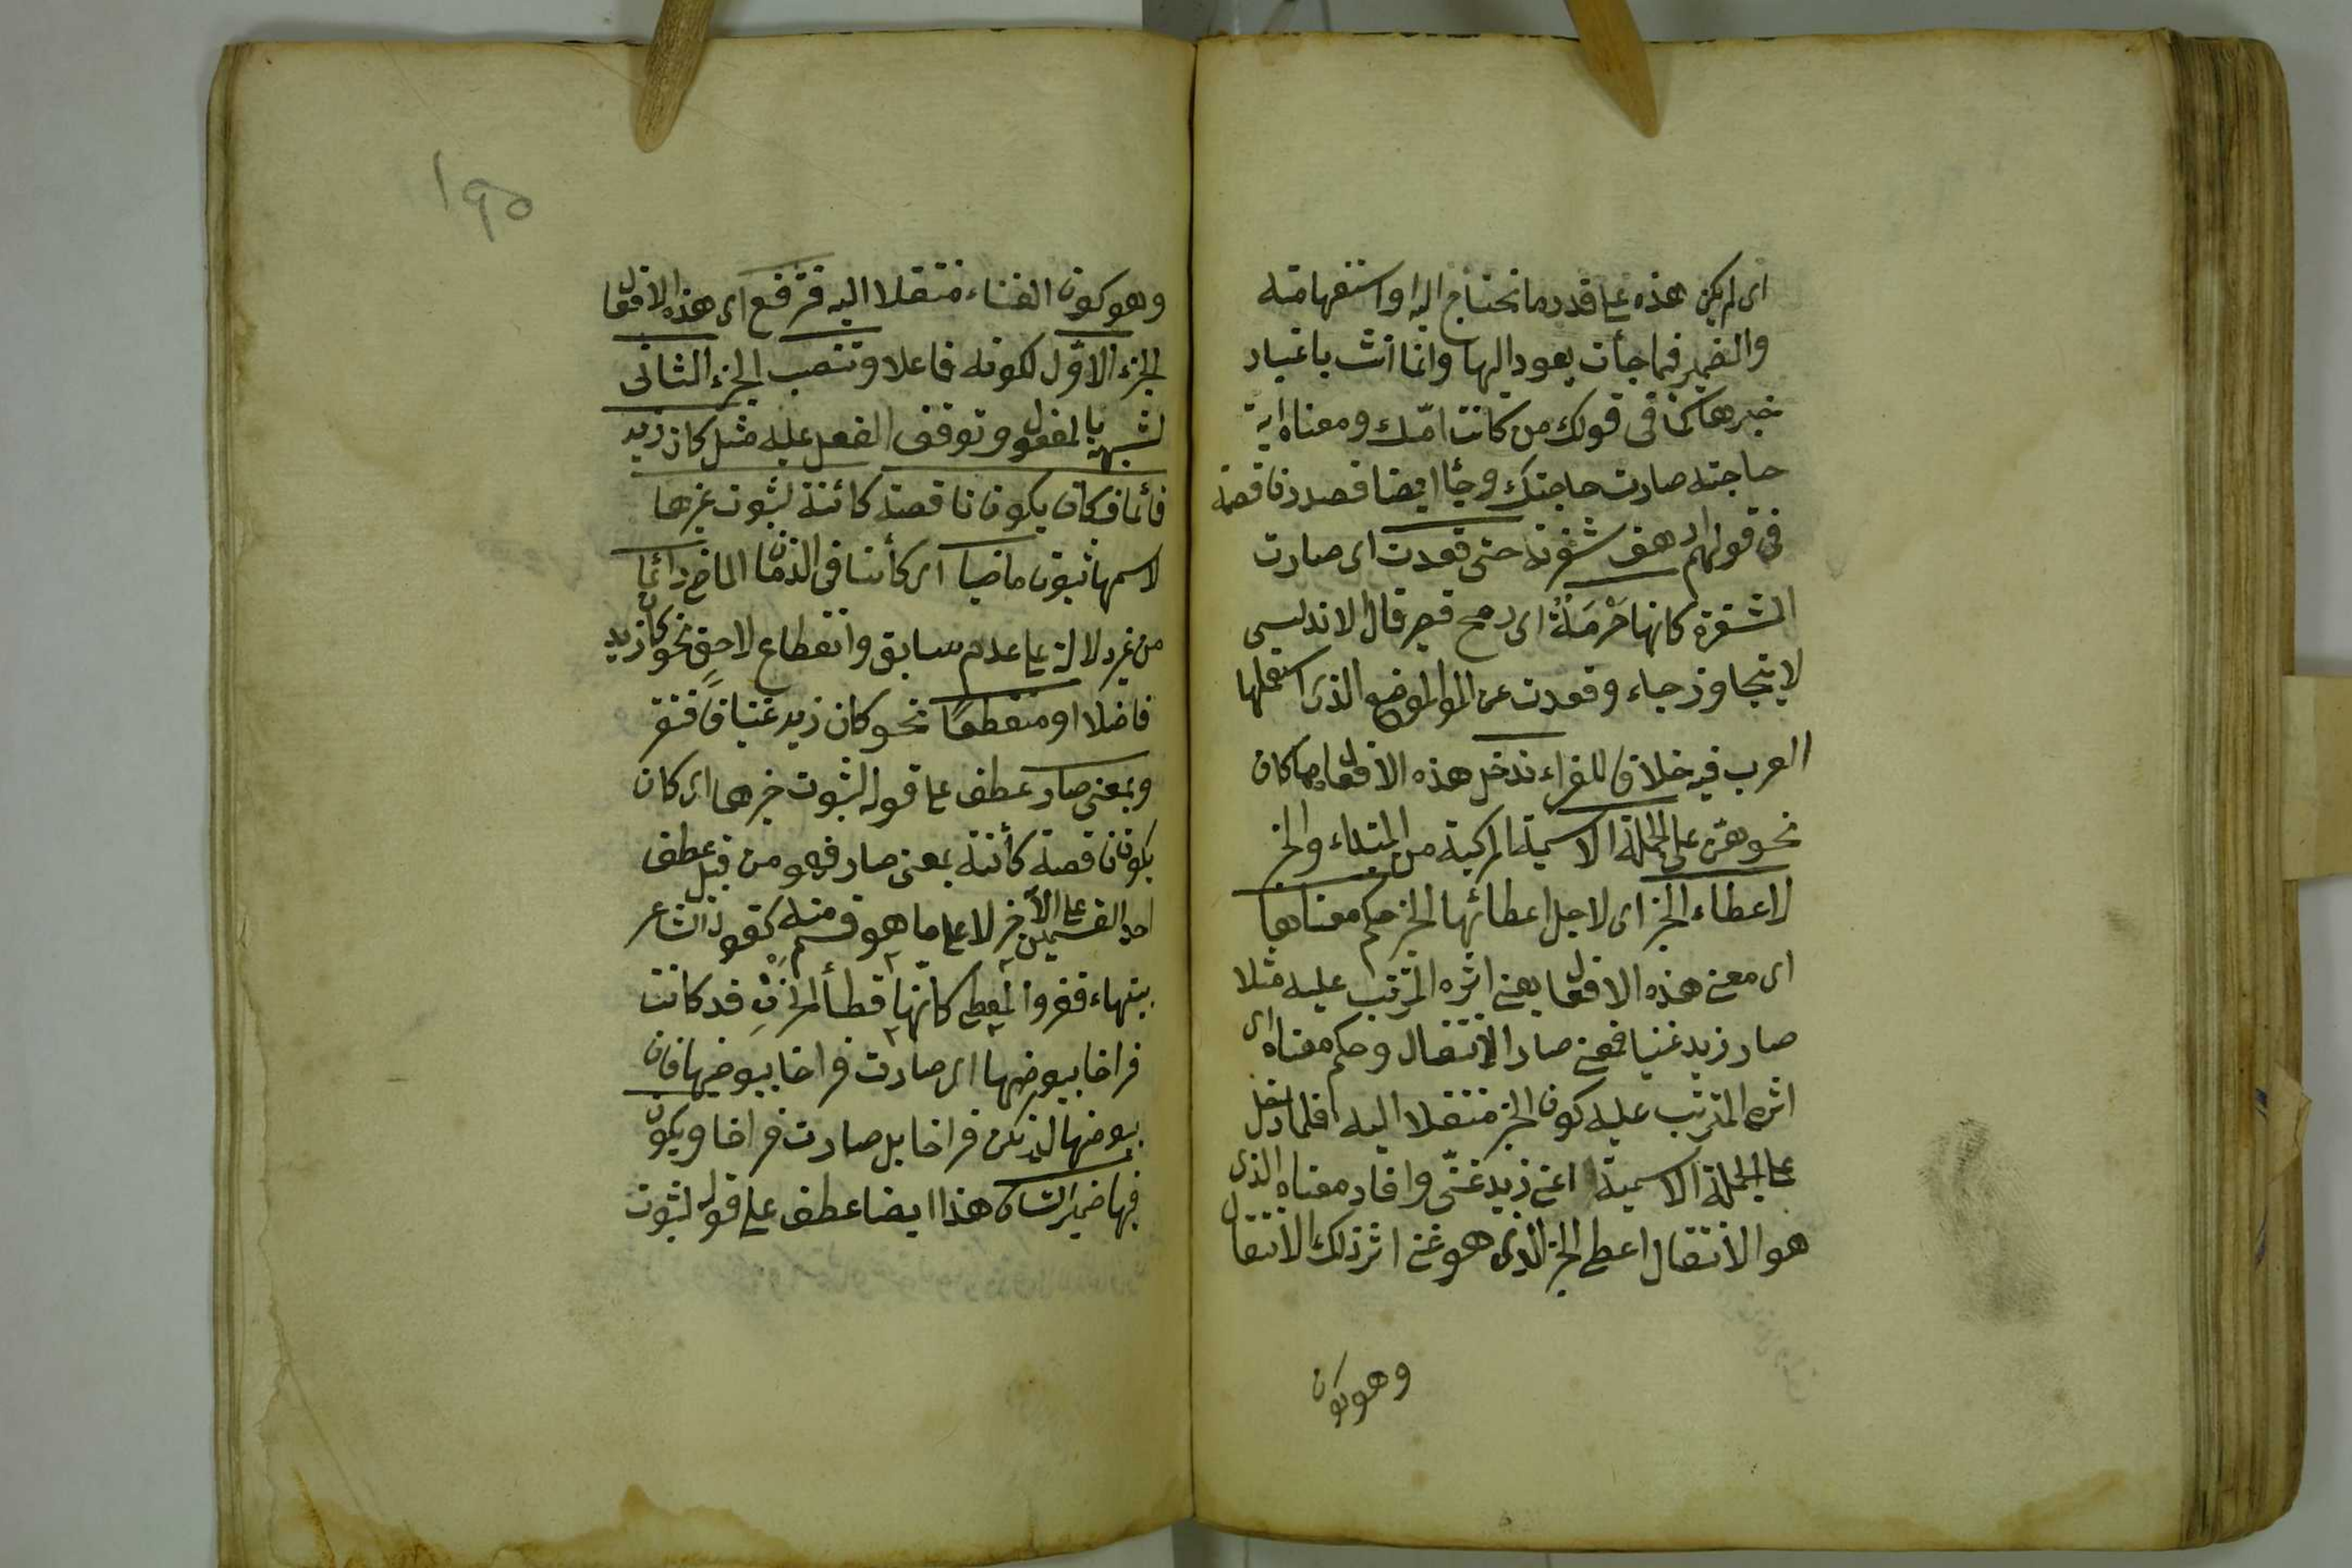 اى لم يكن هذه على قدر ما نحتاج اليه او استفهامية
والضمير فى ما جأت يعود اليها وانما انث باعتبار
خبرها كما فى قولك من كانت امّك ومعناه اية
حاجته صارت حاجتك وجأ ايضا قعد ناقصة
فى قولهم ارهف شفرته حتى قعدت اى صارت
الشفرة كانها حَرْبَةٌ اى رمح قصير قال الاندلسى
لا يتجاوز جاء وقعدت عن الموضع الذى استعملها
العرب فيه خلافا للفراء تدخل هذه الافعال اى كان
نحوهن على الجملة الاسمية المركبة من المبتداء والخبر
لاعطاء الخبر اى لاجل اعطائها الخبر حكم معناها
اى معنى هذه الافعال يعنى اثره المترتب عليه مثلا
صار زيد غنيا فمعنى صار الانتقال وحكم معناه اى
اثره المترتب عليه كون الخبر منتقلا اليه فلما دخل
على الجملة الاسمية اعنى زيد غنىّ وافاد معناه الذى
هو الانتقال اعطى الخبر الذى هو غنى اثر ذلك الانتقال
وهو كون
١٩٥
وهو كون الغناء منتقلا اليه فترفع اى هذه الافعال
الجزء الاوّل لكونه فاعلا وتنصب الجزء الثانى
لشبهه بالمفعول وتوقف الفعل عليه مثل كان زيد
قائما فكان يكون ناقصة كائنة لثبوت خبرها
لاسمها ثبوتا ماضيا اى كأئنا فى الزمان الماضى دائما
من غير دلالة على عدم سابق وانقطاع لاحق نحو كان زيد
فاضلا او منقطعًا نحو كان زيد غنيا فافتقر
وبمعنى صار عطف على قوله لثبوت خبرها اى كان
يكون ناقصة كأئنة بمعنى صار فهو من قبيل عطف
احد القسمين على الآخر لا على ما هو قسم منه كقول الشاعر
بتيهاء قفر والمطى كانها قطا الحزنِ قد كانت
فراخا بيوضها اى صارت فراخا بيوضها فان
بيوضها لم تكن فراخا بل صارت فراخا ويكون
فيها ضمير الشان هذا ايضا عطف على قوله لثبوت